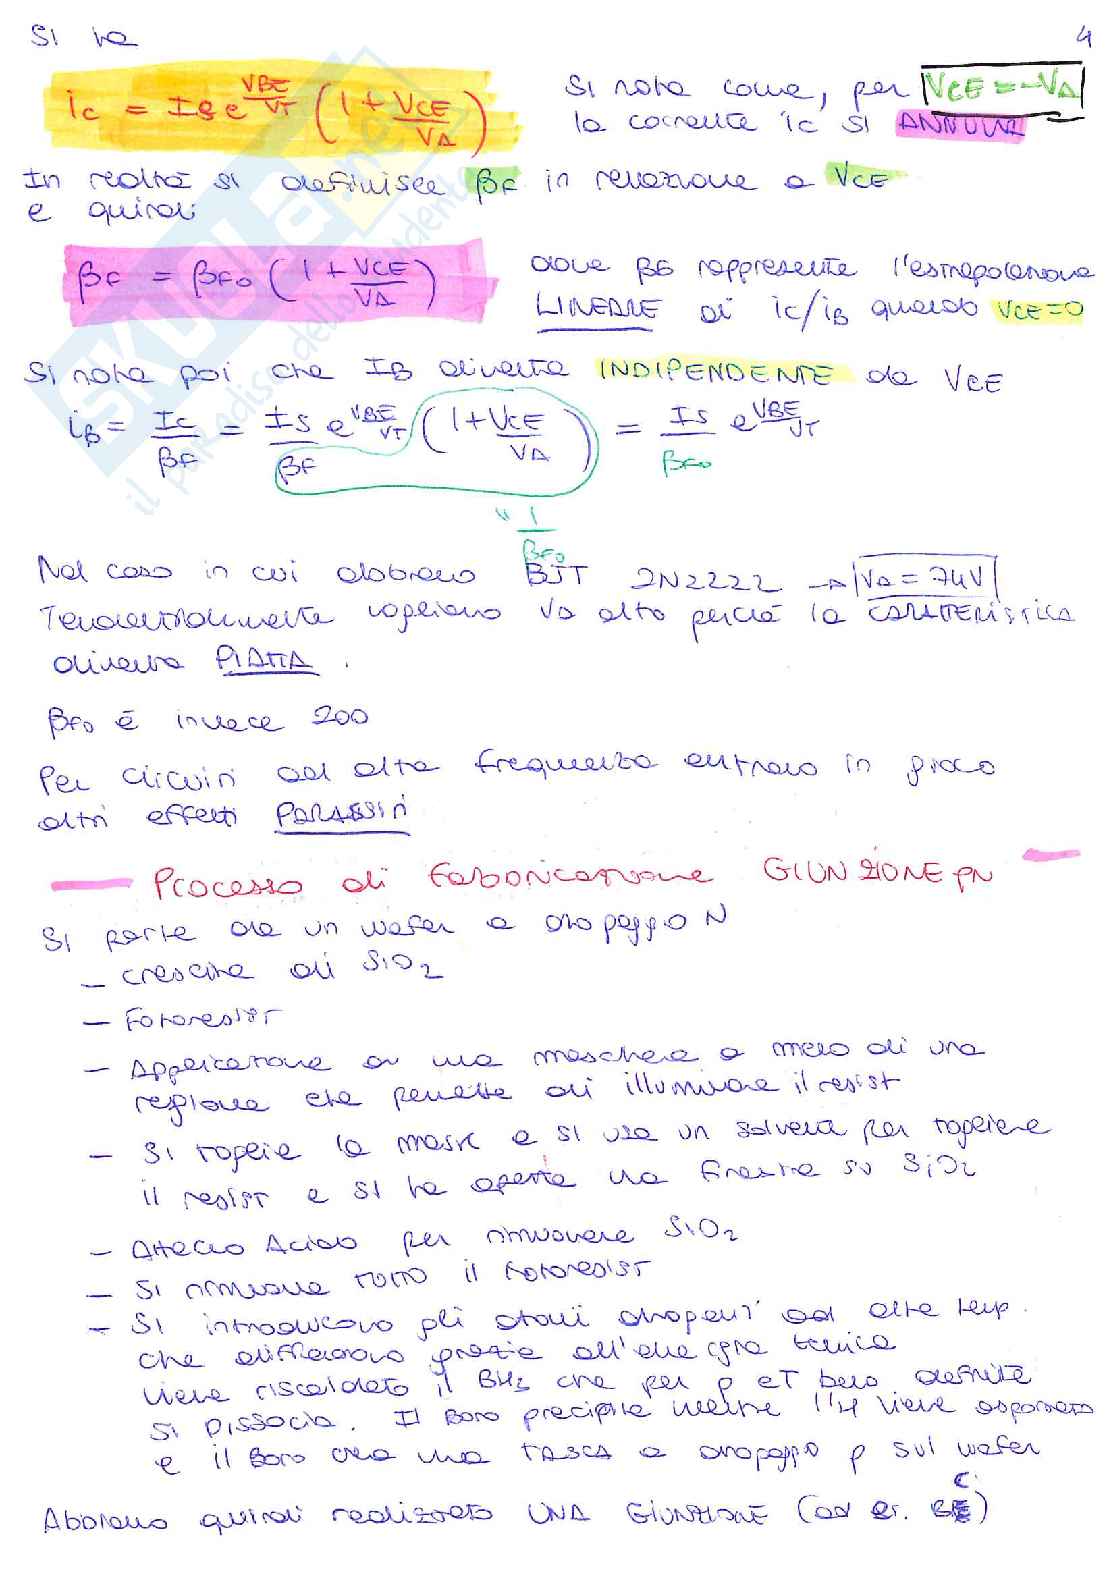 Si ha
4
ic = Is e^(VBE/VT) (1 + VCE/VA)
Si nota come, per VCE = -VA
la corrente ic si ANNULLA
In realtà si definisce βF in relazione a VCE
e quindi
βF = βF0 (1 + VCE/VA)
dove βF0 rappresenta l'estrapolazione
LINEARE di ic/iB quando VCE=0
Si nota poi che IB diventa INDIPENDENTE da VCE
iB = Ic/βF = Is/βF e^(VBE/VT) (1 + VCE/VA) = Is/βF0 e^(VBE/VT)
" 1/βF0
Nel caso in cui abbiamo BJT 2N2222 → VA = 74V
Tendenzialmente vogliamo VA alto perché la CARATTERISTICA
diventa PIATTA.
βF0 è invece 200
Per circuiti ad alta frequenza entrano in gioco
altri effetti PARASSITI
Processo di fabbricazione GIUNZIONE pn
Si parte da un wafer a drogaggio N
– crescita di SiO2
– Fotoresist
– Applicazione di una maschera a meno di una
regione che permette di illuminare il resist
– Si toglie la mask e si usa un solvente per togliere
il resist e si ha aperta una finestra su SiO2
– Attacco Acido per rimuovere SiO2
– Si rimuove tutto il fotoresist
– Si introducono gli atomi droganti ad alta temp.
che diffondono grazie all'energia termica
viene riscaldato il BH3 che per p e T ben definite
si DISSOCIA. Il Boro precipita mentre l'H viene asportato
e il Boro crea una TASCA a drogaggio p sul wafer
Abbiamo quindi realizzato UNA GIUNZIONE (ad es. BC)
SKUOLA.net
il paradiso dello studente